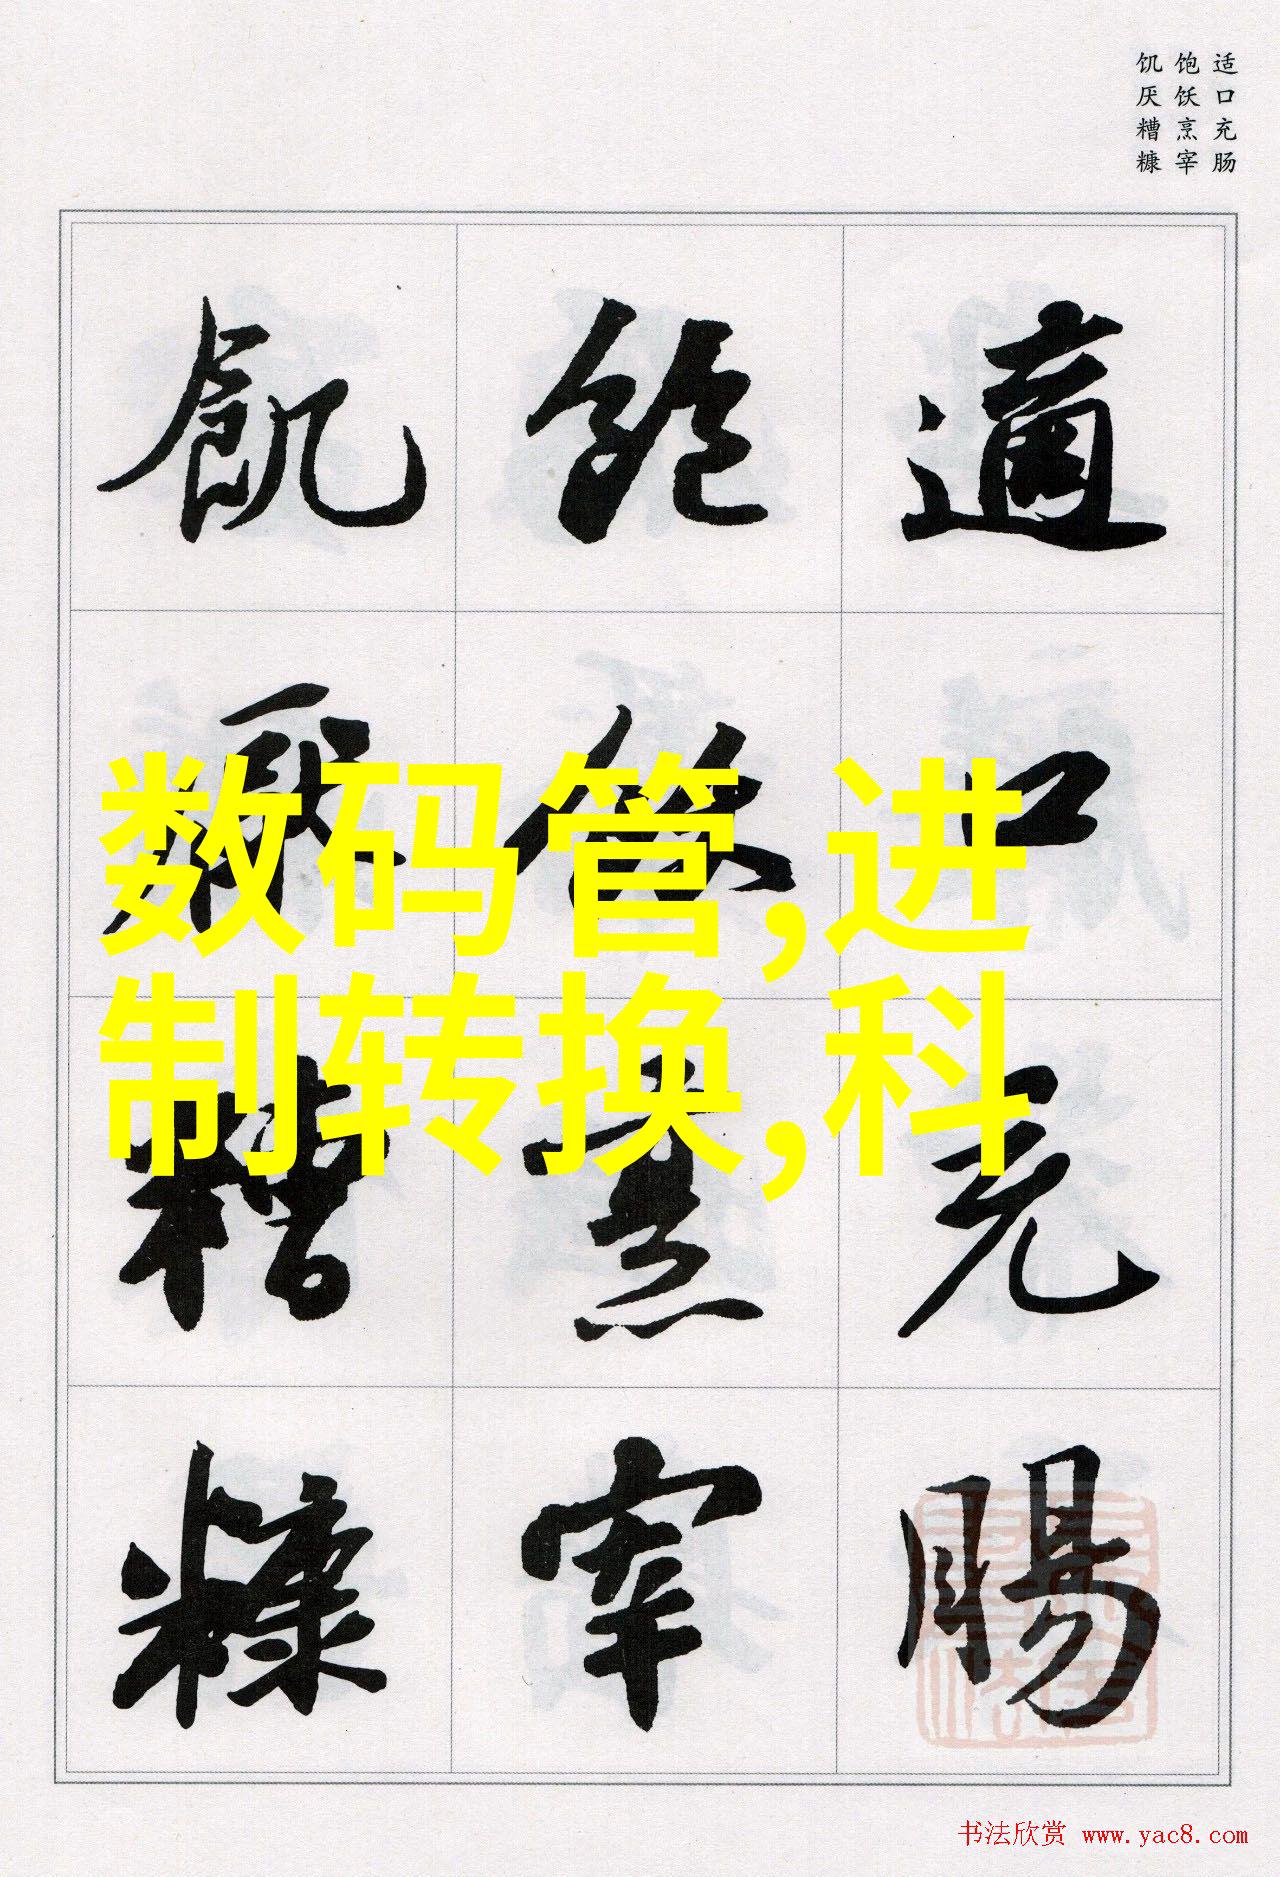 适口充肠
饱饫烹宰
饥厌糟糠
適口充腸
飽飫烹宰
飢厭糟糠
数码管,进
制转换,科
书法欣赏 www.yac8.com